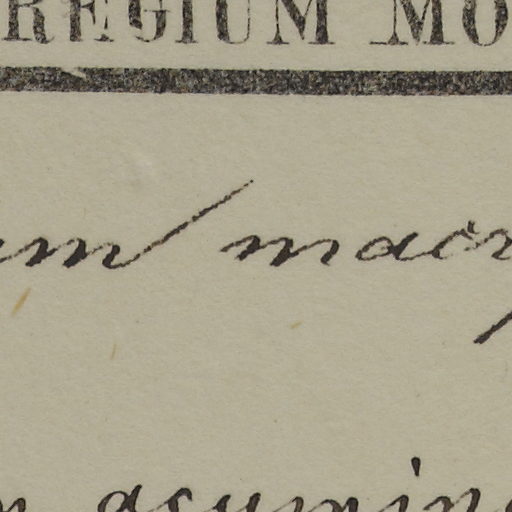 REGIUM MO
um macr
m acumin